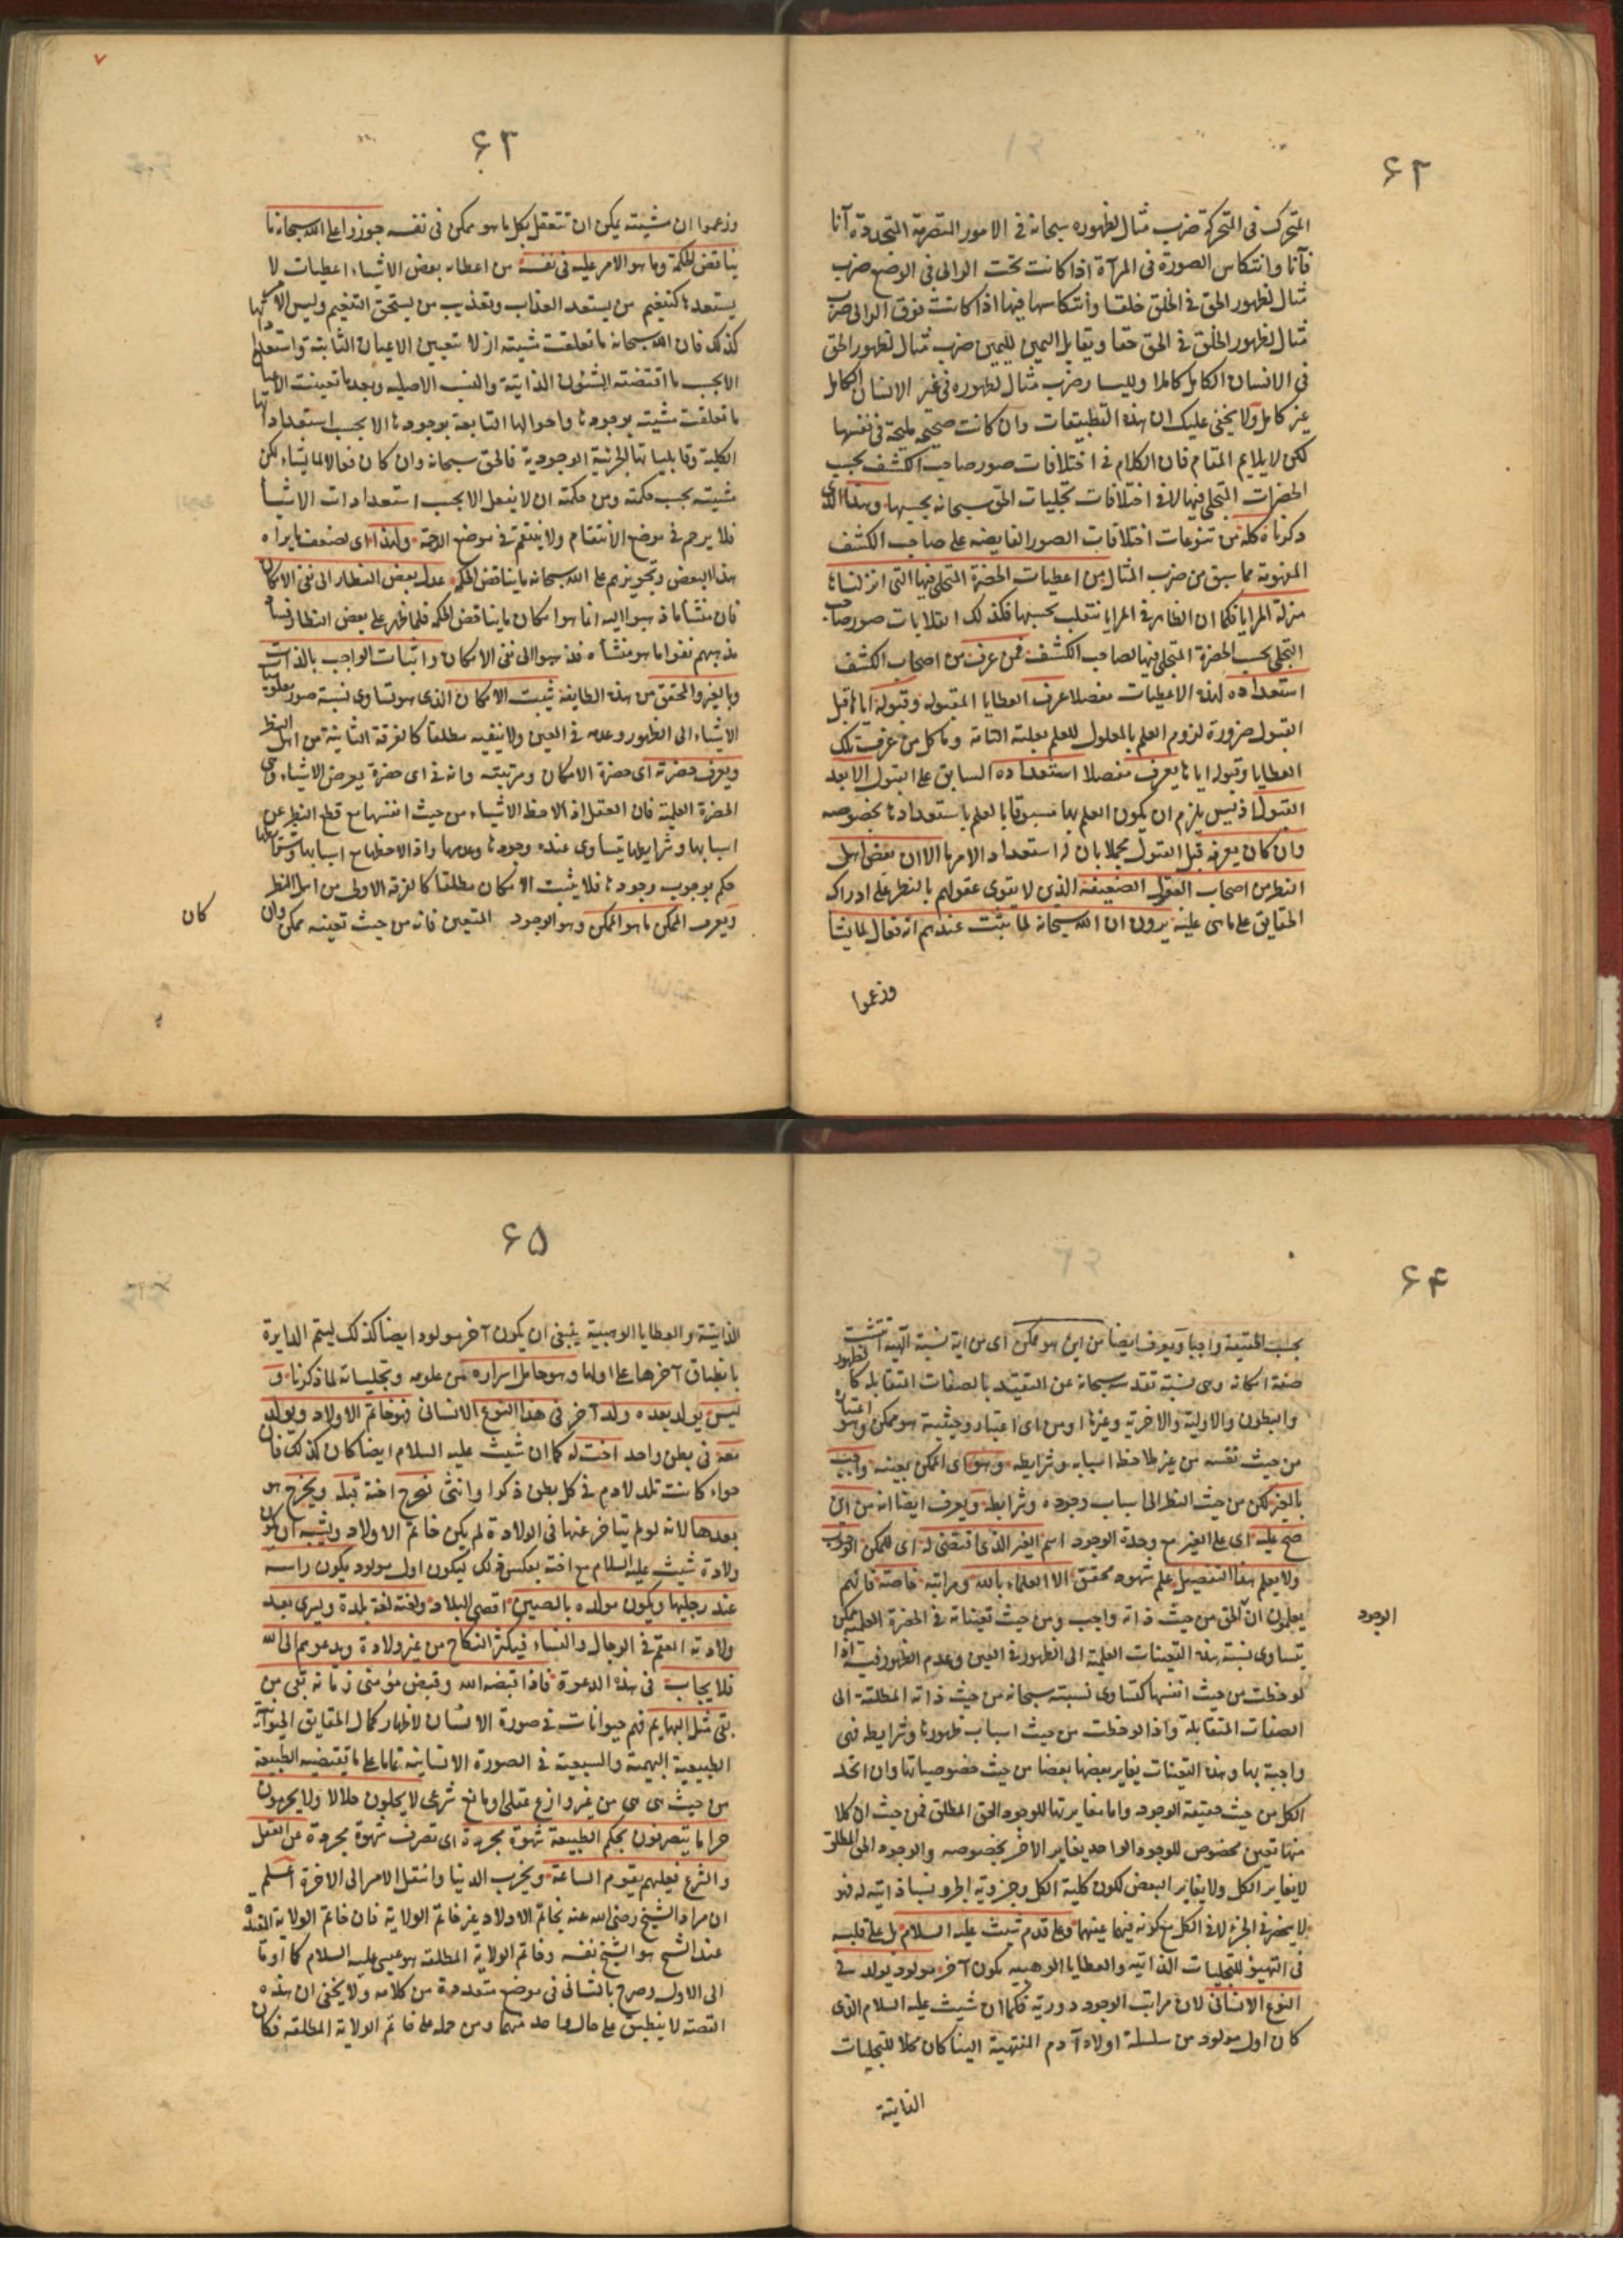 ۶۲
المتحرك فی المتحركة ضرب مثال لظهوره سبحانه فی الامور المتصرمة المتجددة آنا
فآنا وانتكاس الصورة فی المرآة اذا كانت تحت الرائی فی الوضع ضرب
مثال لظهور الحق فی الخلق خلقا وانتكاسها فیها اذا كانت فوق الرائی ضرب
مثال لظهور الخلق فی الحق حقا وتقابل الیمین للیمین ضرب مثال لظهور الحق
فی الانسان الكامل كاملا وللیسار ضرب مثال لظهوره فی غیر الانسان الكامل
غیر كامل ولا یخفی علیك ان هذه التطبیقات وان كانت صحیحة ملیحة فی نفسها
لكن لا یلایم المقام فان الكلام فی اختلافات صور صاحب الكشف بحسب
الحضرات المتجلی فیها لا فی اختلافات تجلیات الحق سبحانه بحسبها وهذا الذی
ذكرناه كله من تنوعات اختلافات الصور الفایضه علی صاحب الكشف
المفهومة مما سبق من ضرب المثال من اعطیات الحضرة المتجلی فیها التی انزلناها
منزلة المرایا فكما ان الظاهر فی المرایا تنقلب بحسبها فكذلك انقلابات صور صاحب
التجلی بحسب الحضرة المتجلی فیها لصاحب الكشف فمن عرف من اصحاب الكشف
استعداده لهذه الاعطیات مفصلا عرف العطایا المقبوله وقبوله ایاها قبل
القبول ضرورة لزوم العلم بالمعلول للعلم بعلته التامة وما كل من عرف تلك
العطایا وقبوله ایاها یعرف مفصلا استعداده السابق علی القبول الا بعد
القبول اذ لیس یلزم ان یكون العلم بها مسبوقا بالعلم باستعدادها بخصوصه
وان كان یعرفه قبل القبول مجملا بان له استعداد الامر ما الا ان بعض اهل
النظر من اصحاب العقول الضعیفة الذین لا یقوی عقولهم بالنظر علی ادراك
الحقایق علی ما هی علیه یرون ان الله سبحانه لما ثبت عندهم انه فعال لما یشاء
وزعموا
۷
۶۳
وزعموا ان مشیته یمكن ان تتعلق بكل ما هو ممكن فی نفسه جوزوا علی الله سبحانه ما
یناقض الحكمة وما هو الامر علیه فی نفسه من اعطاء بعض الاشیاء اعطیات لا
یستعدها كتنعیم من یستعد العذاب وتعذیب من یستحق التنعیم ولیس الامر
كذلك فان الله سبحانه ما تعلقت مشیته ازلا بتعیین الاعیان الثابتة واستعداداتها
الا بحسب ما اقتضته الشئون الذاتیة والنسب الاصلیه وبعد ما تعینت الاعیان
ما تعلقت مشیته بوجودها واحوالها التابعة بوجودها الا بحسب استعداداتها
الكلیة وقابلیاتها الجزئیة الوجودیة فالحق سبحانه وان كان فعالا لما یشاء لكن
مشیته بحسب حكمته ومن حكمته ان لا یفعل الا بحسب استعدادات الاشیاء
فلا یرحم فی موضع الانتقام ولا ینتقم فی موضع الرحمة ولهذا ای لضعف ما یراه
هذا البعض وتجویزهم علی الله سبحانه ما یناقض الحكمة عدل بعض النظار الی نفی الامكان
فان منشأ ما ذهبوا الیه انما هو امكان ما یناقض الحكمة فلما ظهر علی بعض النظار فساد
مذهبهم نفوا ما هو منشأه فذهبوا الی نفی الامكان واثبات الواجب بالذات
وبالغیر والمحقق من هذه الطایفة یثبت الامكان الذی هو تساوی نسبة صور معلومیة
الاشیاء الی الظهور وعدمه فی العین ولا ینفیه مطلقا كالفرقة الثانیة من اهل النظر
ویعرف حضرته ای حضرة الامكان ومرتبته وانه فی ای حضرة یعرض الاشیاء وهی
الحضرة العلمیة فان العقل اذا لاحظ الاشیاء من حیث انفسها مع قطع النظر عن
اسبابها وشرایطها یتساوی عنده وجودها وعدمها واذا لاحظها مع اسبابها وشرایطها
حكم بوجوب وجودها فلا یثبت الامكان مطلقا كالفرقة الاولی من اهل النظر
ویعرف الممكن ما هو الممكن وهو الوجود المتعین فانه من حیث تعینه ممكن وان
كان
۶۴
بحسب الحقیقة واجبا ویعرف ایضا من این هو ممكن ای من ایة نسبة الهیه انتشت
صفة امكانه وهی نسبة تقدسه سبحانه عن التقید بالصفات المتقابله كالظهور
والبطون والاولیة والآخریة وغیرها ومن ای اعتبار وحیثیة هو ممكن وهو اعتباره
من حیث نفسه من غیر ملاحظة اسبابه وشرایطه وهو ای الممكن بعینه واجب
بالغیر لكن من حیث النظر الی اسباب وجوده وشرایطه ویعرف ایضا انه من این
صح علیه ای علی الغیر مع وحدة الوجود اسم الغیر الذی اقتضی له ای للممكن الوجوب
ولا یعلم هذا التفصیل علم شهود محقق الا العلماء بالله ومراتبه خاصة فانهم
یعلمون ان الحق من حیث ذاته واجب ومن حیث تعیناته فی الحضرة العلمیة ممكن
الوجود
یتساوی نسبة هذه التعینات العلمیة الی الظهور فی العین وعدم الظهور فیه اذا
لوحظت من حیث انفسها كتساوی نسبته سبحانه من حیث ذاته المطلقة الی
الصفات المتقابلة واذا لوحظت من حیث اسباب ظهورها وشرایطه فهی
واجبة بها وهذه التعینات یغایر بعضها بعضا من حیث خصوصیاتها وان اتحد
الكل من حیث حقیقة الوجود واما مغایرتها للوجود الحق المطلق فمن حیث ان كلا
منها تعین مخصوص للوجود الواحد یغایر الآخر بخصوصه والوجود الحق المطلق
لا یغایر الكل ولا یغایر البعض لكون كلیة الكل وجزئیة الجزء نسبا ذاتیة له فهو
لا ینحصر فی الجزء ولا فی الكل مع كونه فیهما عینهما وعلی قدم شیث علیه السلام بل علی قلبه
فی التهیؤ للتجلیات الذاتیه والعطایا الوهبیه یكون آخر مولود یولد فی
النوع الانسانی لان مراتب الوجود دوریة فكما ان شیث علیه السلام الذی
كان اول مولود من سلسلة اولاد آدم المنتهیة الینا كان محلا للتجلیات
الذاتیة
۶۵
الذاتیة والعطایا الوهبیة ینبغی ان یكون آخر مولود ایضا كذلك لیتم الدایرة
بانطباق آخرها علی اولها وهو حامل اسراره من علومه وتجلیاته لما ذكرنا و
لیس یولد بعده ولد آخر فی هذا النوع الانسانی فهو خاتم الاولاد ویولد
معه فی بطن واحد اخت له كما ان شیث علیه السلام ایضا كان كذلك فان
حواء كانت تلد لآدم فی كل بطن ذكرا وانثی فتخرج اخته قبله ویخرج هو
بعدها لانه لو لم یتاخر عنها فی الولادة لم یكن خاتم الاولاد ویشبه ان یكون
ولادة شیث علیه السلام مع اخته بعكس ذلك لیكون اول مولود یكون راسه
عند رجلیها ویكون مولده بالصین اقصی البلاد ولغته لغة بلده ویسری بعد
ولادته العقم فی الرجال والنساء فیكثر النكاح من غیر ولادة ویدعوهم الی الله
فلا یجاب فی هذه الدعوة فاذا قبضه الله وقبض مؤمنی زمانه بقی من
بقی مثل البهایم فهم حیوانات فی صورة الانسان لاظهار كمال الحقایق الحیوانیة
الطبیعیة البهیمیة والسبعیة فی الصورة الانسانیة تماما علی ما تقتضیه الطبیعة
من حیث هی هی من غیر وازع عقلی او مانع شرعی لا یحلون حلالا ولا یحرمون
حراما یتصرفون بحكم الطبیعة شهوة مجردة ای تصرف شهوة مجردة عن العقل
والشرع فعلیهم یقوم الساعة ویخرب الدنیا وانتقل الامر الی الآخرة اعلم
ان مراد الشیخ رضی الله عنه بخاتم الاولاد غیر خاتم الولایة فان خاتم الولایة المقیدة
عند الشیخ هو الشیخ نفسه وخاتم الولایة المطلقة هو عیسی علیه السلام كما اومأ
الی الاول وصرح بالثانی فی مواضع متعددة من كلامه ولا یخفی ان هذه
القصة لا ینطبق علی حال واحد منهما ومن حمله علی خاتم الولایة المطلقة فكان